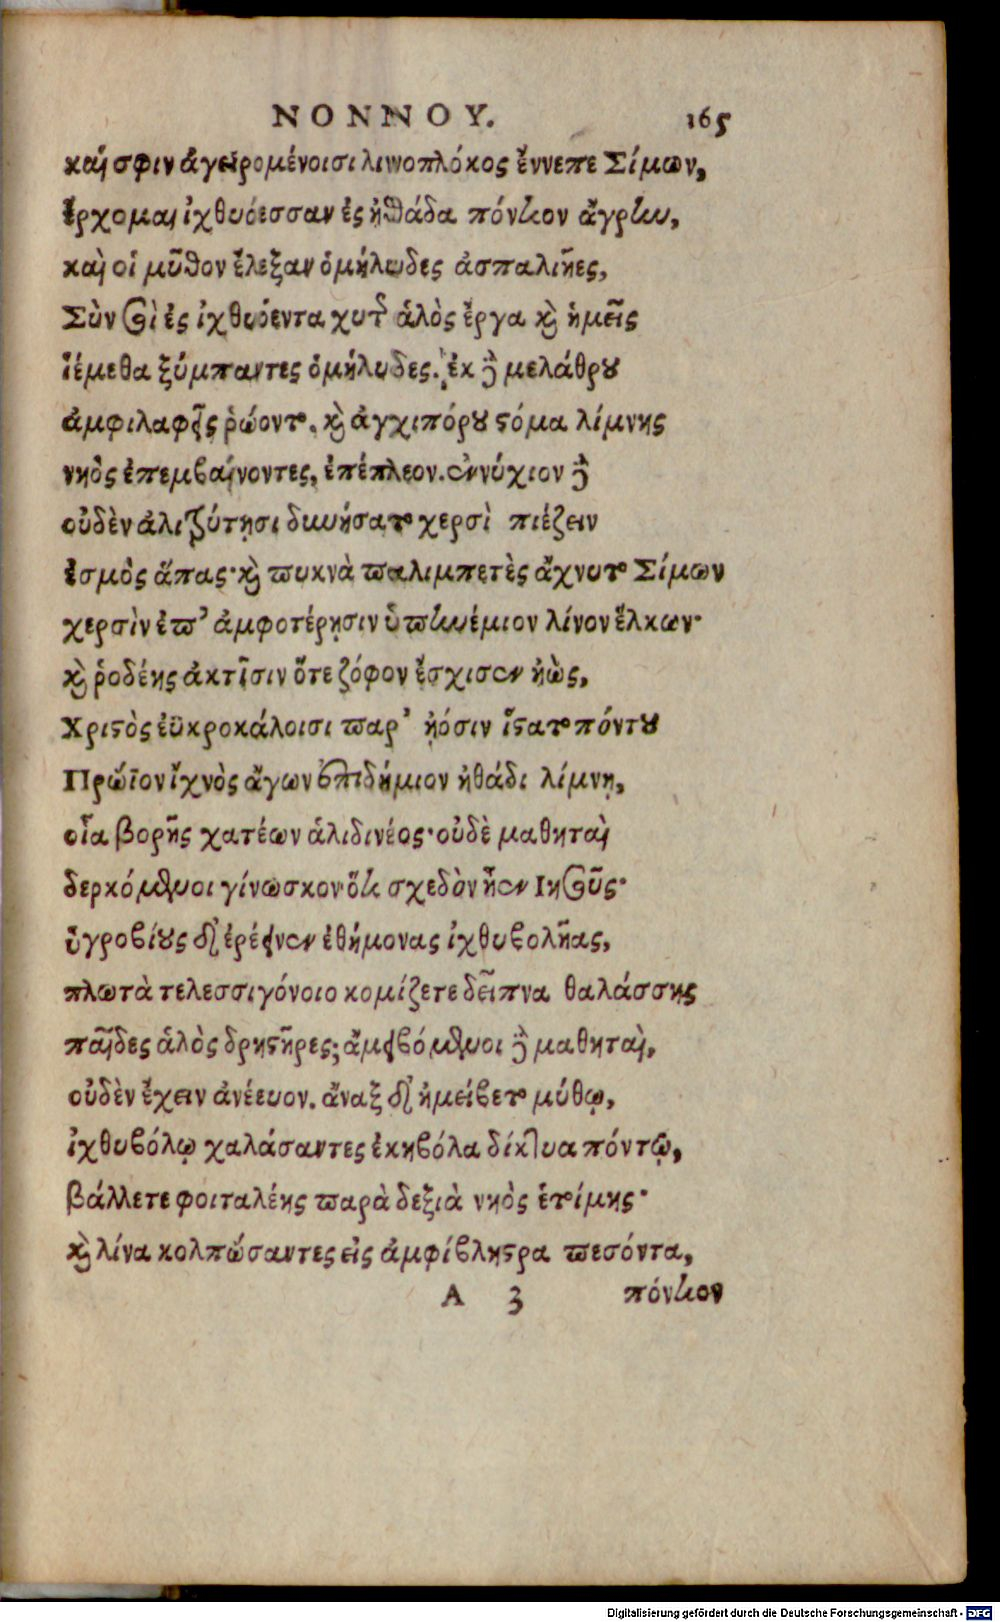 ΝΟΝΝΟΥ. 165
καί σφιν ἀγειρομένοισι λινοπλόκος ἔννεπε Σίμων,
ἔρχομαι ἰχθυόεσσαν ἐς ἠθάδα πόντιον ἄγρην,
καὶ οἱ μῦθον ἔλεξαν ὁμήλυδες ἀσπαλιῆες,
Σὺν σοὶ ἐς ἰχθυόεντα χυτῆς ἁλὸς ἔργα καὶ ἡμεῖς
ἱέμεθα ξύμπαντες ὁμήλυδες. ἐκ δὲ μελάθρου
ἀμφιλαφεῖς ῥώοντο. καὶ ἀγχιπόρου στόμα λίμνης
νηὸς ἐπεμβαίνοντες, ἐπέπλεον. ἐννύχιον δὲ
οὐδὲν ἁλιζώτῃσι δυνήσατο χερσὶ πιέζειν
ἑσμὸς ἅπας· καὶ πυκνὰ παλιμπετὲς ἄχνυτο Σίμων
χερσὶν ἐπ' ἀμφοτέρῃσιν ὑπηνέμιον λίνον ἕλκων·
καὶ ῥοδέης ἀκτῖσιν ὅτε ζόφον ἔσχισεν ἠὼς,
Χριστὸς ἐϋκροκάλοισι παρ' ᾐόσιν ἵστατο πόντου
Πρώϊον ἴχνος ἄγων ἐπιδήμιον ἠθάδι λίμνῃ,
οἷα βορῆς χατέων ἁλιδινέος· οὐδὲ μαθηταὶ
δερκόμενοι γίνωσκον ὅτι σχεδὸν ἦεν Ιησοῦς·
ὑγροβίους δ' ἐρέεινεν ἐθήμονας ἰχθυβολῆας,
πλωτὰ τελεσσιγόνοιο κομίζετε δεῖπνα θαλάσσης
παῖδες ἁλὸς δρηστῆρες; ἀμειβόμενοι δὲ μαθηταὶ,
οὐδὲν ἔχειν ἀνένευον. ἄναξ δ' ἠμείβετο μύθῳ,
ἰχθυβόλῳ χαλάσαντες ἑκηβόλα δίκτυα πόντῳ,
βάλλετε φοιταλέης παρὰ δεξιὰ νηὸς ἑτοίμης·
καὶ λίνα κολπώσαντες εἰς ἀμφίβληστρα πεσόντα,
A 3 πόντιον
Digitalisierung gefördert durch die Deutsche Forschungsgemeinschaft - DFG